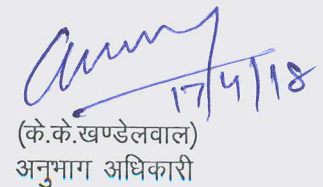 17/4/18
(के.के.खण्डेलवाल)
अनुभाग अधिकारी